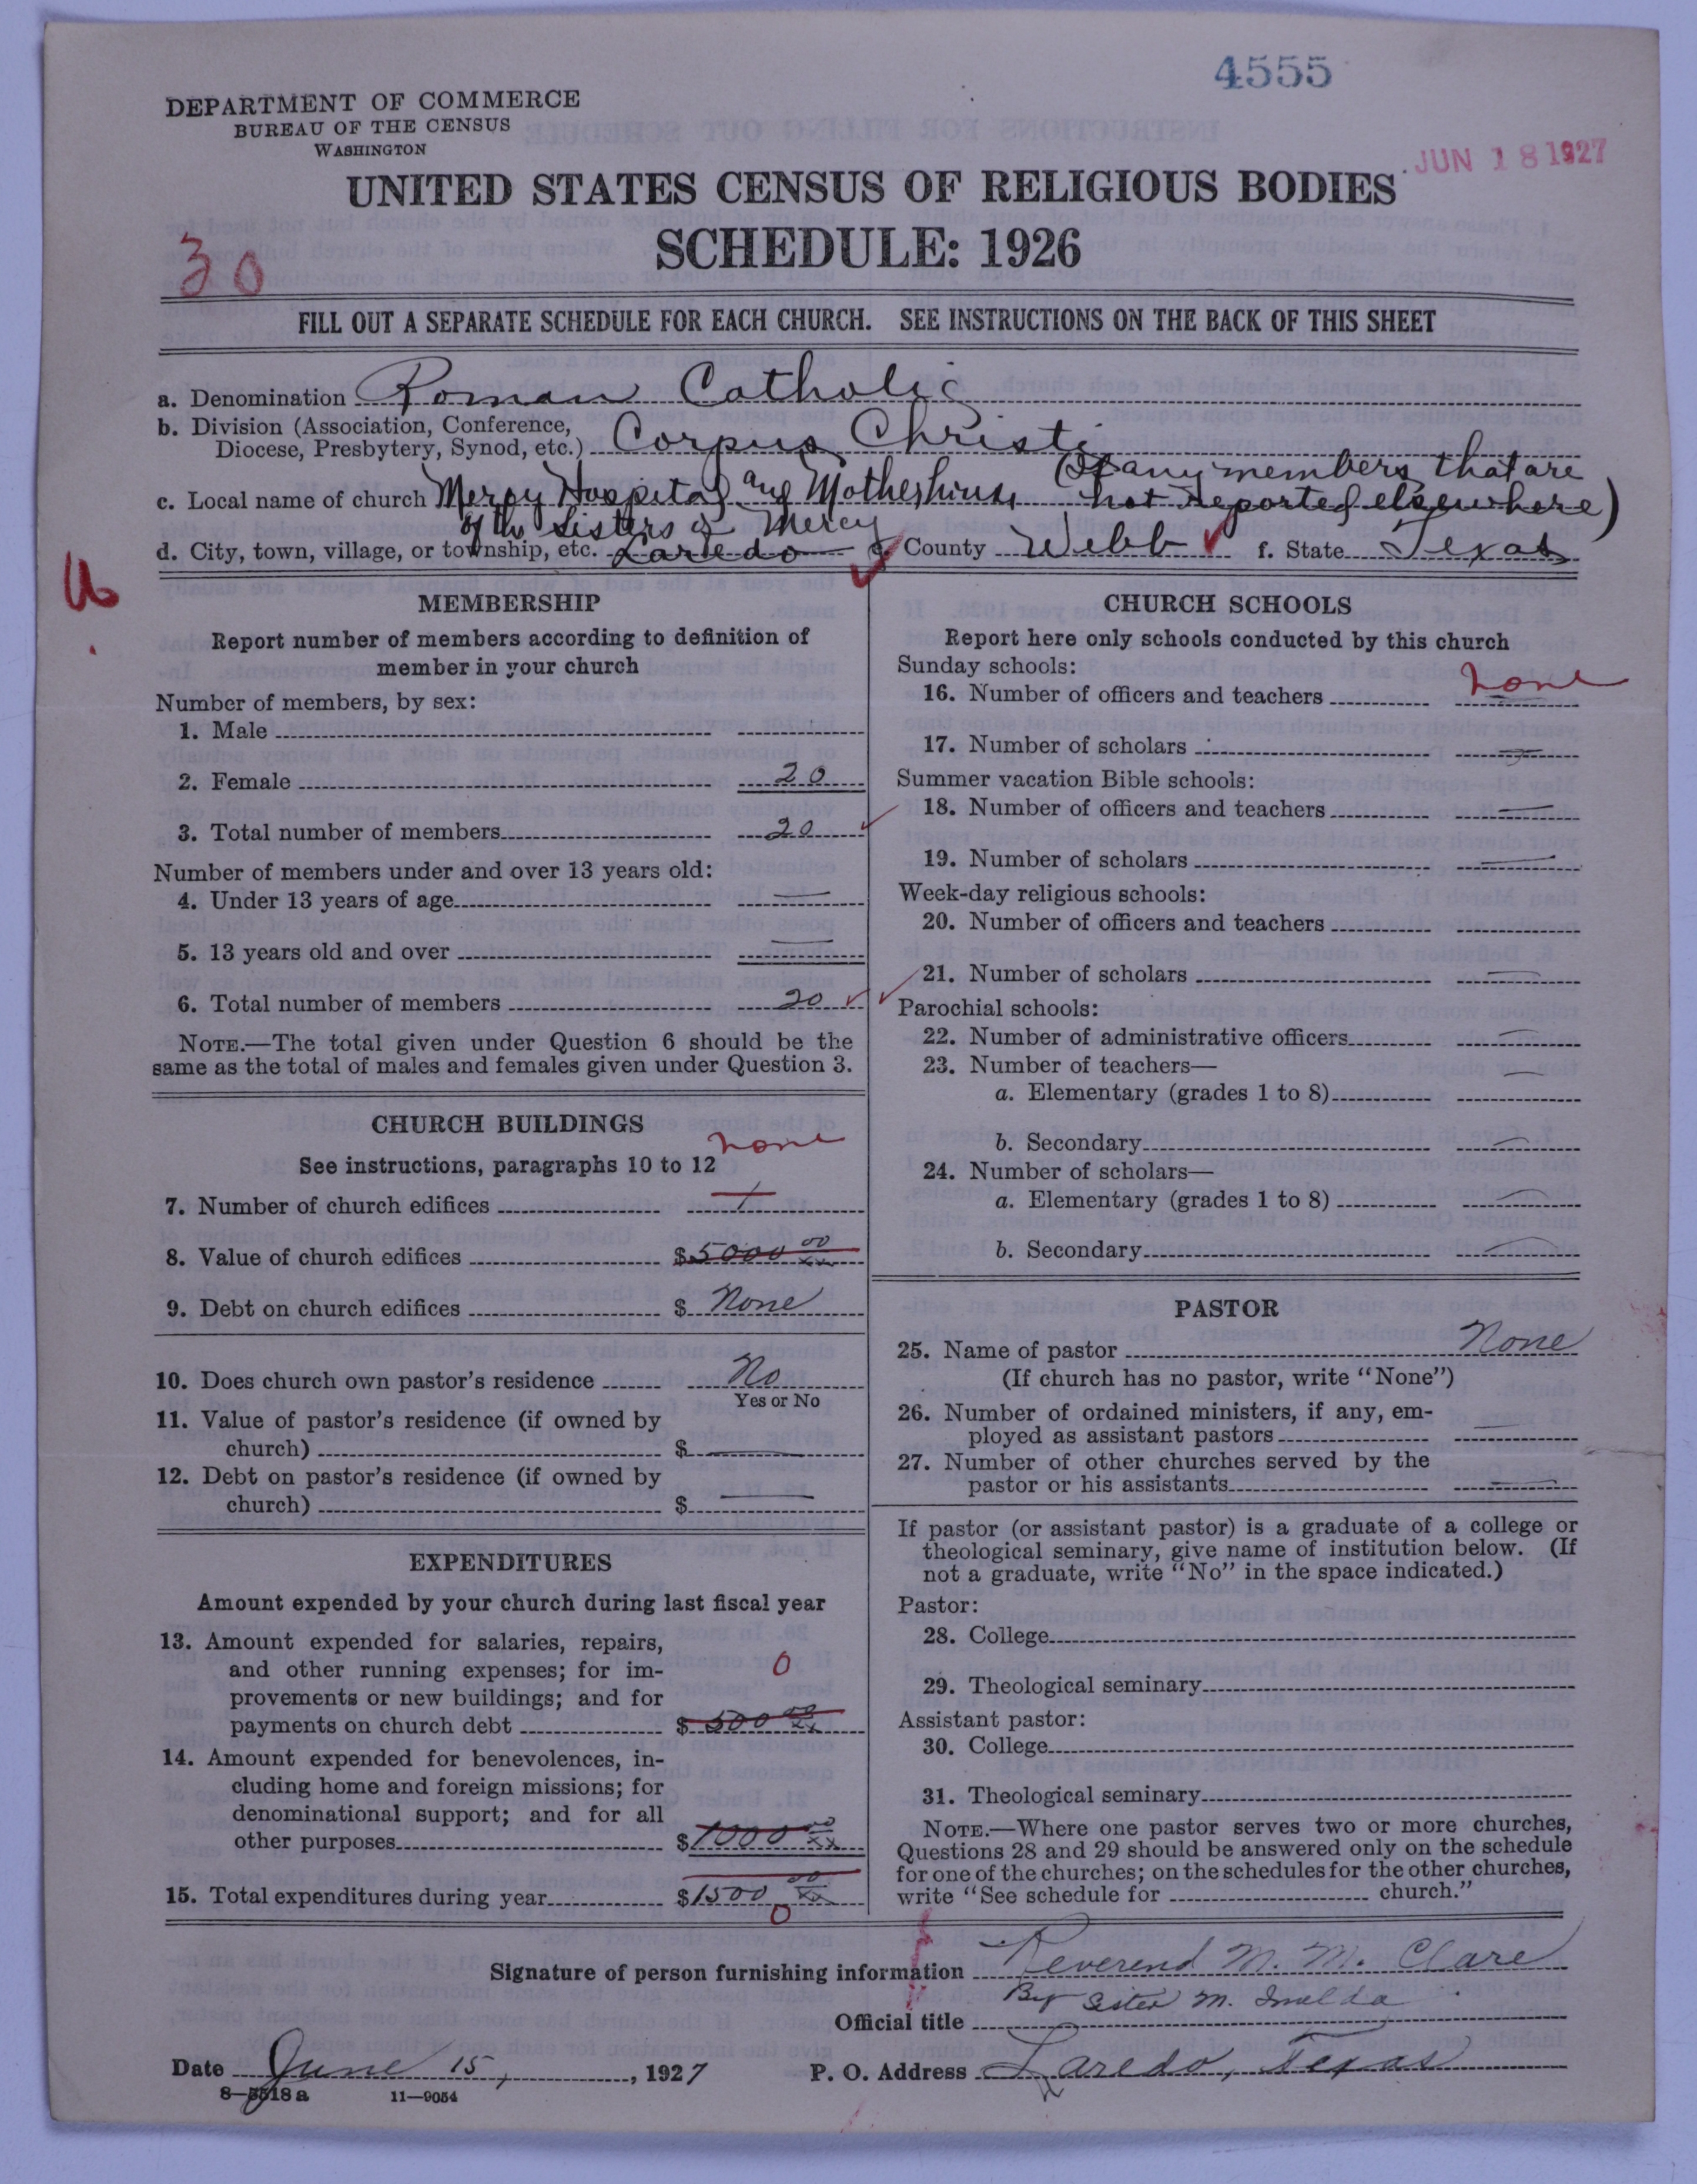 4555
DEPARTMENT OF COMMERCE
BUREAU OF THE CENSUS
WASHINGTON
JUN 18 1927
UNITED STATES CENSUS OF RELIGIOUS BODIES
SCHEDULE: 1926
30
FILL OUT A SEPARATE SCHEDULE FOR EACH CHURCH. SEE INSTRUCTIONS ON THE BACK OF THIS SHEET
a. Denomination Roman Catholic
b. Division (Association, Conference,
Diocese, Presbytery, Synod, etc.) Corpus Christi
(If any members that are
c. Local name of church Mercy Hospital and Motherhouse not reported elsewhere)
of the Sisters of Mercy
d. City, town, village, or township, etc. Laredo e. County Webb f. State Texas
MEMBERSHIP
Report number of members according to definition of
member in your church
Number of members, by sex:
1. Male
2. Female 20
3. Total number of members 20
Number of members under and over 13 years old:
4. Under 13 years of age —
5. 13 years old and over —
6. Total number of members 20
NOTE.—The total given under Question 6 should be the
same as the total of males and females given under Question 3.
CHURCH BUILDINGS
none
See instructions, paragraphs 10 to 12
7. Number of church edifices 1
8. Value of church edifices $5000 00
9. Debt on church edifices $ None
10. Does church own pastor's residence No
Yes or No
11. Value of pastor's residence (if owned by
church) $ —
12. Debt on pastor's residence (if owned by
church) $ —
EXPENDITURES
Amount expended by your church during last fiscal year
13. Amount expended for salaries, repairs,
and other running expenses; for im-
0
provements or new buildings; and for
payments on church debt $ 500 00
14. Amount expended for benevolences, in-
cluding home and foreign missions; for
denominational support; and for all
other purposes $ 1000 00
15. Total expenditures during year $ 1500 00
0
CHURCH SCHOOLS
Report here only schools conducted by this church
Sunday schools:
16. Number of officers and teachers none
17. Number of scholars —
Summer vacation Bible schools:
18. Number of officers and teachers —
19. Number of scholars —
Week-day religious schools:
20. Number of officers and teachers
21. Number of scholars —
Parochial schools:
22. Number of administrative officers —
23. Number of teachers— —
a. Elementary (grades 1 to 8)
b. Secondary —
24. Number of scholars—
a. Elementary (grades 1 to 8) —
b. Secondary —
PASTOR
25. Name of pastor None
(If church has no pastor, write "None")
26. Number of ordained ministers, if any, em-
ployed as assistant pastors —
27. Number of other churches served by the
pastor or his assistants —
If pastor (or assistant pastor) is a graduate of a college or
theological seminary, give name of institution below. (If
not a graduate, write "No" in the space indicated.)
Pastor:
28. College
29. Theological seminary
Assistant pastor:
30. College
31. Theological seminary
NOTE.—Where one pastor serves two or more churches,
Questions 28 and 29 should be answered only on the schedule
for one of the churches; on the schedules for the other churches,
write "See schedule for church."
Signature of person furnishing information Reverend M. M. Clare
By Sister M. Imelda
Official title
Date June 15, 1927 P. O. Address Laredo, Texas
8—5518a 11—9054